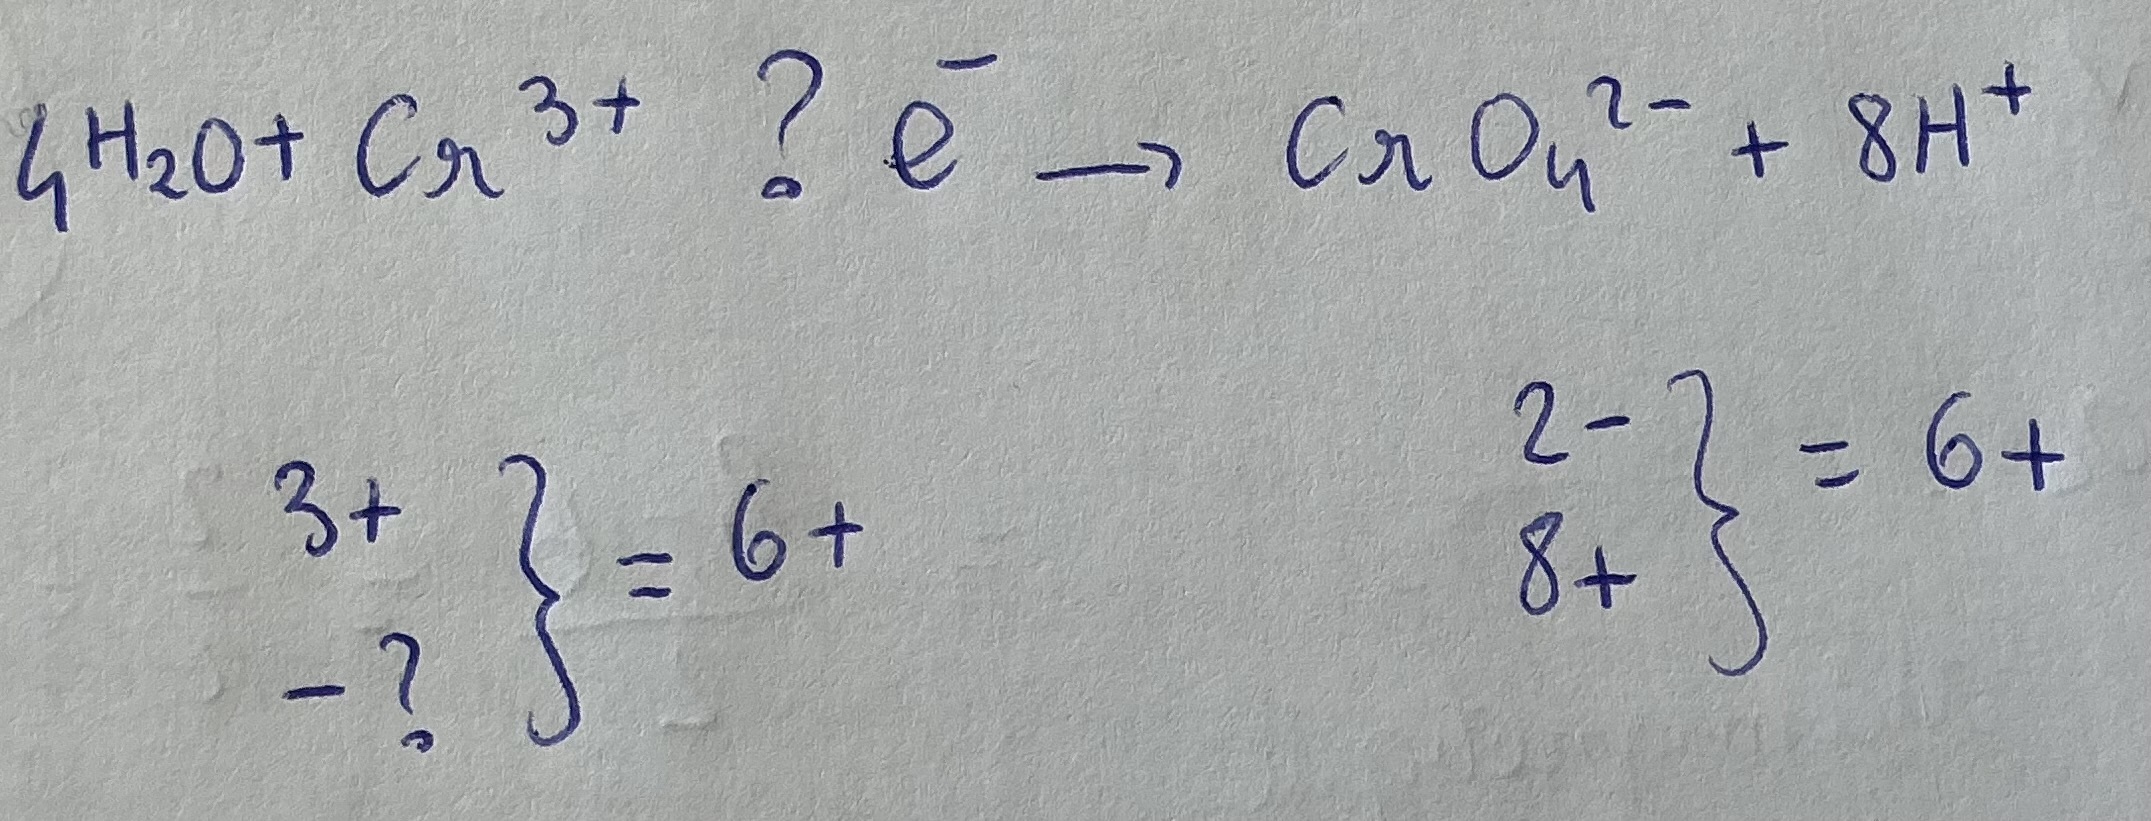 4H₂O + Cr³⁺ ? e⁻ → CrO₄²⁻ + 8H⁺
2-
8+ } = 6+
3+
-? } = 6+